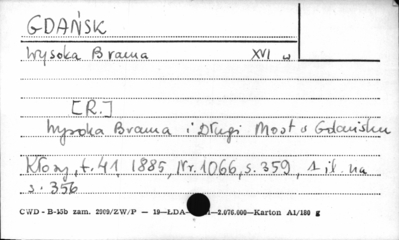 GDAŃSK
Wysoka Brama XVI w
[R.]
Wysoka Brama i Długi Most w Gdańsku
Kłosy, t. 41 1885, Nr. 1066, s. 359, 1 il. na
s. 356
CWD - B-15b zam. 2009/ZW/P — 19—ŁDA- —2.076.000—Karton A1/180 g